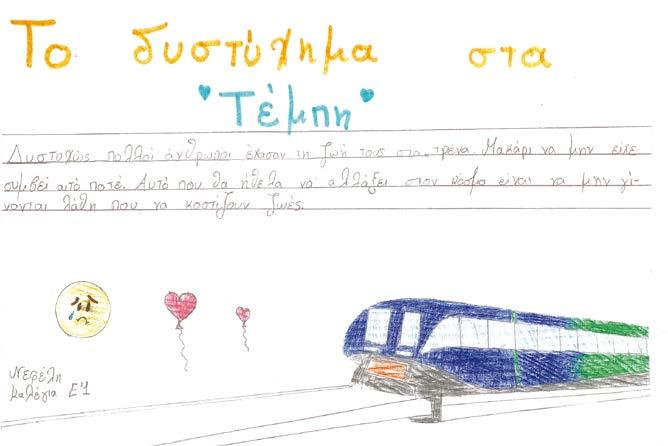 Το δυστύχημα στα
Τέμπη
Δυστυχώς πολλοί άνθρωποι έχασαν τη ζωή τους στα τρένα. Μακάρι να μην είχε
συμβεί αυτό ποτέ. Αυτό που θα ήθελα να αλλάξει στον κόσμο είναι να μην γί-
νονται λάθη που να κοστίζουν ζωές.
Νεφέλη
Καλέγια Ε'1